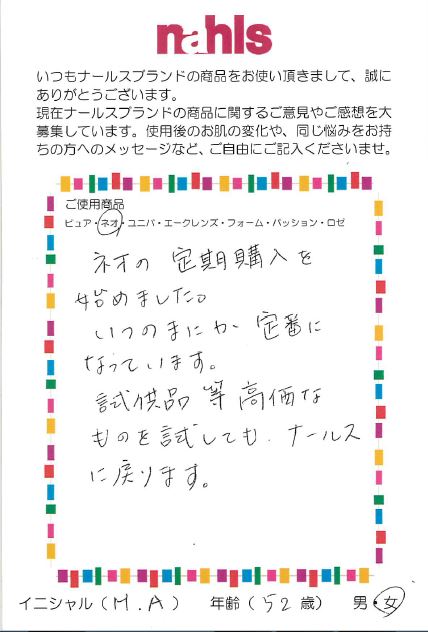 nahls
いつもナールスブランドの商品をお使い頂きまして、誠に
ありがとうございます。
現在ナールスブランドの商品に関するご意見やご感想を大
募集しています。使用後のお肌の変化や、同じ悩みをお持
ちの方へのメッセージなど、ご自由にご記入くださいませ。
ご使用商品
ピュア・ネオ・ユニバ・エークレンズ・フォーム・パッション・ロゼ
ネオの 定期購入を
始めました。
いつのまにか 定番に
なっています。
試供品 等 高価な
ものを試しても、ナールス
に戻ります。
イニシャル（M.A） 年齢（52歳） 男・女